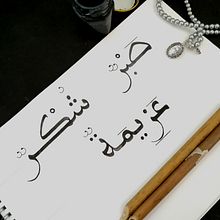 صَبْرٌ
شُكْرٌ
عَزِيمَةٌ